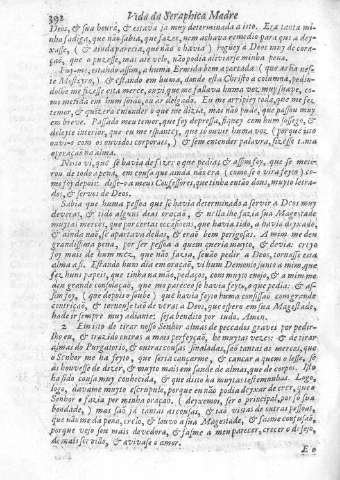 392 Vida da Seraphica Madre
Deos, & sua honra, & estava ja muy determinada a isto. Era tanta mi-
nha fadiga, que não sabia, que fazer, nem achava remedio para que a dey-
xasse, ( & ainda parecia, que não o havia ) roguey a Deos muy de cora-
ção, que o puzesse, mas até velo, não podia aliviarse minha pena.
Fuy-me, estando assim, a huma Ermida bem apartada: ( que as ha nes-
te Mosteyro ) & estando em huma, donde está Christo a columna, pedin-
dolhe me fizesse esta merce, ouvi que me fallava huma voz muy suave, co-
mo metida em hum som, ou ar delgado. Eu me arrepiey toda, que me fez
temor, & quizera entender o que me dizia, mas não pude, que passou muy
em breve. Passado meu temor, que foy depressa, fiquey com hum socego, &
deleyte interior, que eu me espantey, que só ouvir huma voz ( porque isto
ouvi-o com os ouvidos corporaes, ) & sem entender palavra, fizesse tanta
operação na alma.
Nisto vi, que se havia de fazer o que pedia: & assim foy, que se me ti-
rou de todo a pena, em cousa que ainda não era ( como se o vira feyto ) co-
mo foy depois. disse-o a meus Confessores, que tinha então dous, muyto letra-
dos, & servos de Deos.
Sabia que huma pessoa que se havia determinado a servir a Deos muy
deveras, & tido alguns dias oração, & nella lhe fazia sua Magestade
muytas merces, que por certas occasioens, que havia tido, a havia deyxado,
& ainda não se apartava dellas, & eraõ bem perigosas. A mim me deu
grandissima pena, por ser pessoa a quem queria muyto, & devia: creyo
foy mais de hum mez, que não fazia, senão pedir a Deos, tornasse esta
alma a si. Estando hum dia em oração, vi hum Demonio junto a mim que
fez huns papeis, que tinha na mão, pedaços, com muyto enojo, & a mim me
deu grande consolação, que me pareceo se havia feyto, o que pedia: & as-
sim foy, ( que depois o soube ) que havia feyto huma confissaõ com gran-
de contrição, & tornou-se taõ de veras a Deos, que espero em sua Magestade,
ha de ir sempre muy adiante: seja bendito por tudo. Amen.
2 Em isto de tirar nosso Senhor almas de peccados graves por pedir-
lho eu, & trazelo outras a mais perfeyção, he muytas vezes: & de tirar
almas do Purgatorio, & outras cousas sinaladas, são tantas as merces, que
o Senhor me ha feyto, que seria cançarme, & cançar a quem o lesse, se
as houvesse de dizer, & muyto mais em saude de almas, que de corpos. Isto
ha sido cousa muy conhecida, & que disto ha muytas testemunhas. Logo,
logo, davame muyto escrupulo, porque eu não podia deyxar de crer, que o
Senhor o fazia por minha oração, ( deyxemos, ser o principal, por só sua
bondade, ) mas são ja tantas as cousas, & tão vistas de outras pessoas,
que não me da pena, crelo, & louvo a sua Magestade, & fazme confusão,
porque vejo sou mais devedora, & fazme a meu parecer, crecer o desejo,
de mais servillo, & avivase o amor.
E o